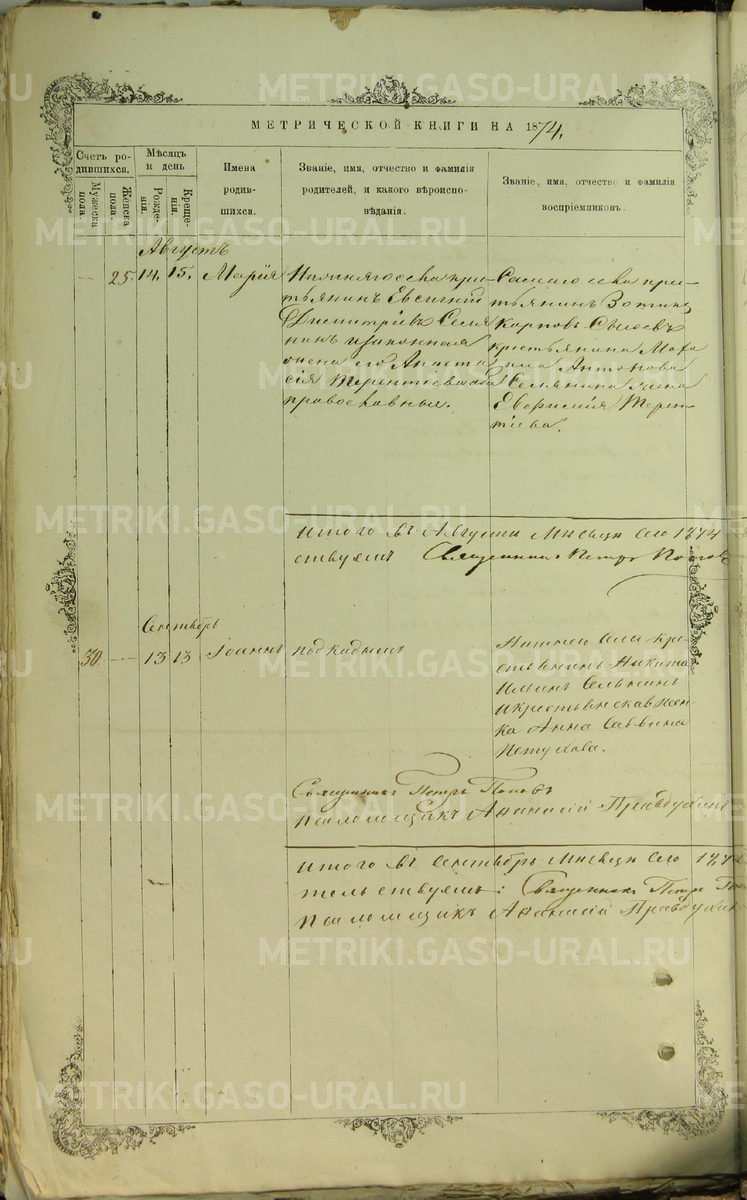 МЕТРИЧЕСКОЙ КНИГИ НА 1874.
Счетъ ро-
дившихся.
Мужеска
пола.
Женска
пола.
Мѣсяцъ
и день
Рожде-
нія.
Креще-
нія.
Имена
родив-
шихся.
Званіе, имя, отчество и фамилія
родителей, и какого вѣроиспо-
вѣданія.
Званіе, имя, отчество и фамилія
воспріемниковъ.
Августъ
25. 14. 15. Марія
села кре-
стьянинъ Евсигній
Димитріевъ Селя
нинъ и законная
жена его Анаста
сія Терентьевна
православные.
села кре-
стьянинъ Зотикъ
Карповъ
крестьянина
Антонова
Селянина жена
Евфимія Терен-
тьева.
Итого въ Августѣ Мѣсяцѣ сего 1874
Священникъ Петръ Попов
Сентябрь
30. 13 13 Іоаннъ подкидышъ
села кре-
стьянинъ Никита
и крестьянская жен-
ка Анна Саввина
Петухова.
Священникъ Петръ Поповъ
Псаломщикъ Аѳанасій
Итого въ Сентябрѣ Мѣсяцѣ сего 187
тельствуемъ: Священникъ Петръ По
Псаломщикъ Аѳанасій
METRIKI.GASO-URAL.RU